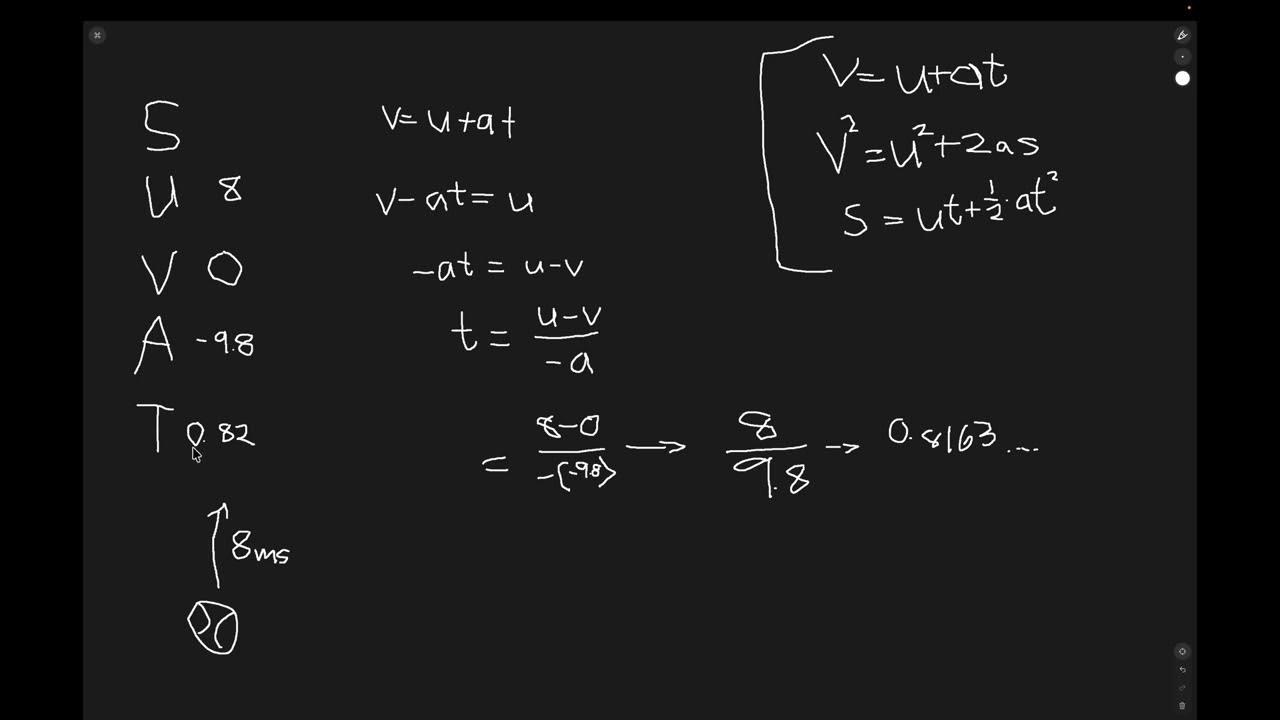 S
U 8
V 0
A -9.8
T 0.82
8ms
v=u+at
v-at=u
-at=u-v
t=\frac{u-v}{-a}
=\frac{8-0}{-(-9.8)} → \frac{8}{9.8} → 0.8163...
V=u+at
V²=u²+2as
S=ut+\frac{1}{2}·at²